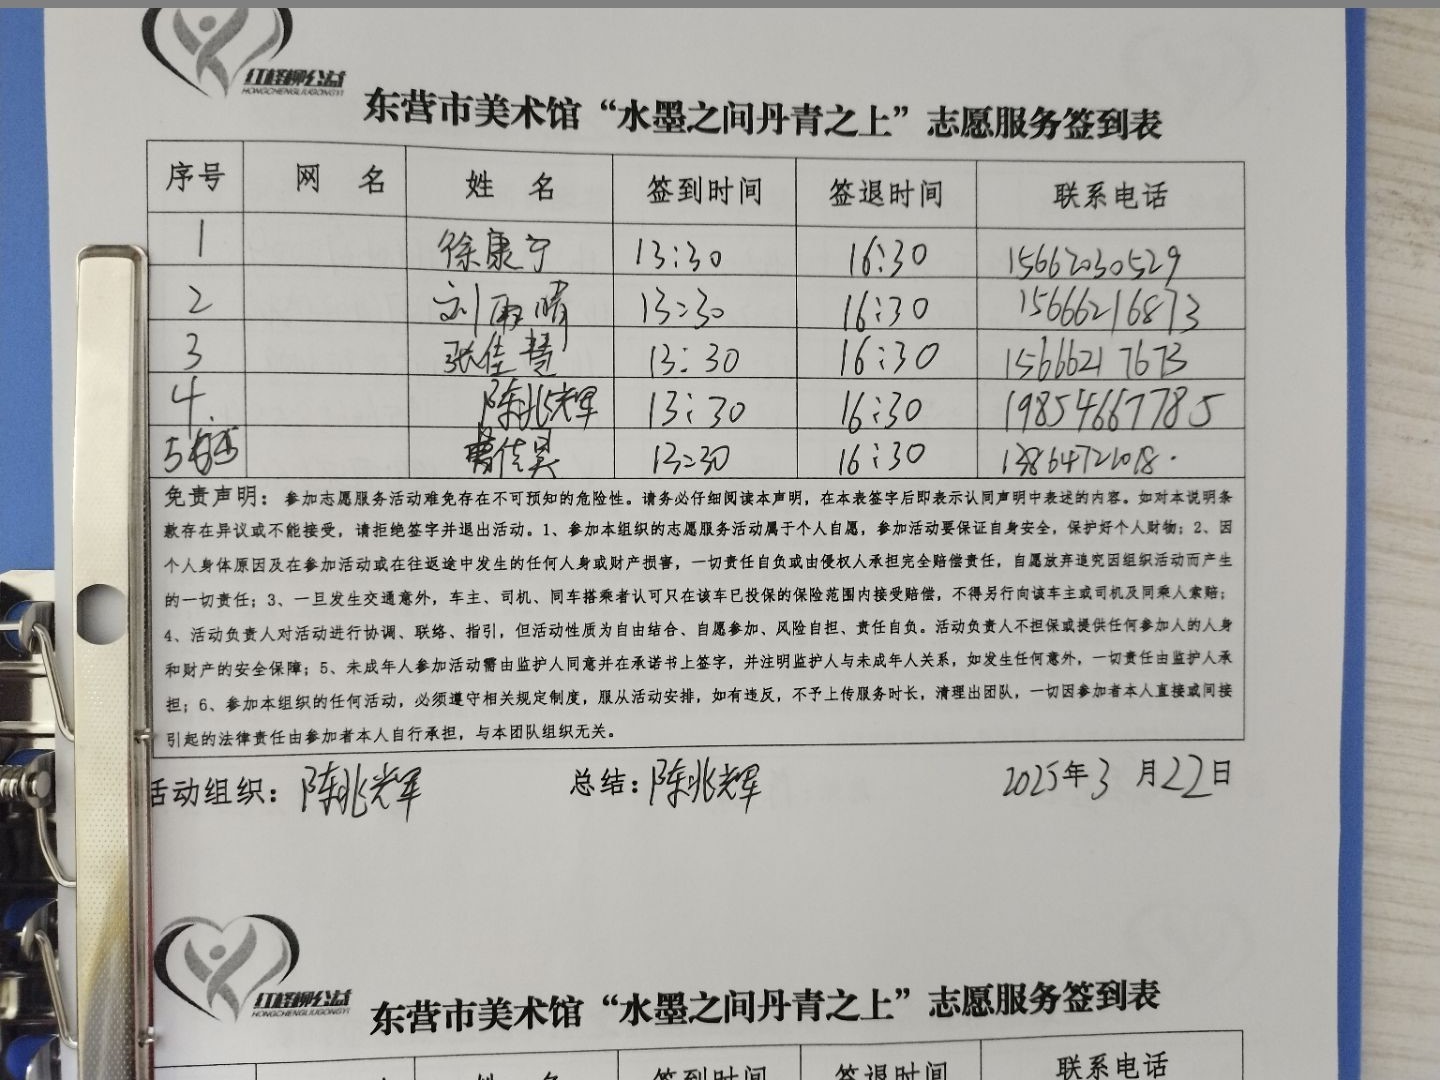 红柽柳公益
HONGCHENGLIUGONGYI
东营市美术馆“水墨之间丹青之上”志愿服务签到表
序号 网 名 姓 名 签到时间 签退时间 联系电话
1 徐康宁 13:30 16:30 15662030529
2 刘雨晴 13:30 16:30 15666216873
3 张佳慧 13:30 16:30 15666217673
4. 陈兆辉 13:30 16:30 19854667785
5 曹佳昊 13:30 16:30 13864721018.
免责声明：参加志愿服务活动难免存在不可预知的危险性。请务必仔细阅读本声明，在本表签字后即表示认同声明中表述的内容。如对本说明条
款存在异议或不能接受，请拒绝签字并退出活动。1、参加本组织的志愿服务活动属于个人自愿，参加活动要保证自身安全，保护好个人财物；2、因
个人身体原因及在参加活动或在往返途中发生的任何人身或财产损害，一切责任自负或由侵权人承担完全赔偿责任，自愿放弃追究因组织活动而产生
的一切责任；3、一旦发生交通意外，车主、司机、同车搭乘者认可只在该车已投保的保险范围内接受赔偿，不得另行向该车主或司机及同乘人索赔；
4、活动负责人对活动进行协调、联络、指引，但活动性质为自由结合、自愿参加、风险自担、责任自负。活动负责人不担保或提供任何参加人的人身
和财产的安全保障；5、未成年人参加活动需由监护人同意并在承诺书上签字，并注明监护人与未成年人关系，如发生任何意外，一切责任由监护人承
担；6、参加本组织的任何活动，必须遵守相关规定制度，服从活动安排，如有违反，不予上传服务时长，清理出团队，一切因参加者本人直接或间接
引起的法律责任由参加者本人自行承担，与本团队组织无关。
活动组织：陈兆辉 总结：陈兆辉 2025年3月22日
红柽柳公益
HONGCHENGLIUGONGYI
东营市美术馆“水墨之间丹青之上”志愿服务签到表
姓 名 签到时间 签退时间 联系电话